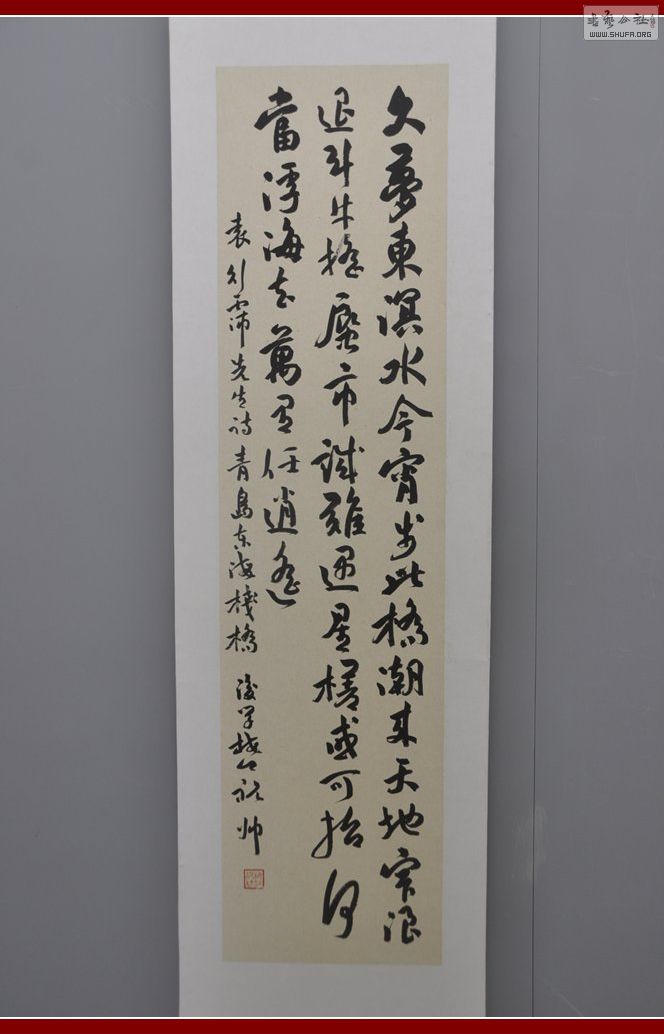 久夢東溟水今宵步此橋潮來天地窄浪
退斗牛搖蜃市誠難遇星槎或可招何
當浮海去萬里任逍遙
袁行霈先生詩青島东海棧橋 後学祝帅
書藝公社
WWW.SHUFA.ORG